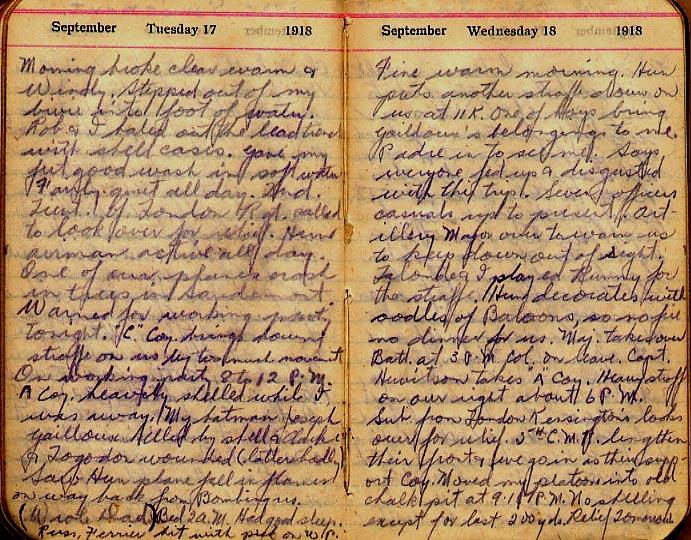 September Tuesday 17 1918
Morning broke clear warm &
Windy. Stepped out of my
bivie into 1 foot of water.
Rob & I baled out the lead trench
with shell cases. Gave my
a good wash in soft water
Fairly quiet all day. 2nd.
Lieut. of London Rgt. called
to look over for relief. Hun
airman active all day.
One of our planes crash
in trees in
Warned for working party
tonight. "C" Coy. brings down
straff on us by too much movem't
On working party 8 to 12 P.M.
A Coy. heavily shelled while I
was away. My batman Joseph
Gailloux killed by shell &
& wounded (latter badly)
Saw Hun plane fall in flames
on way back from Bombing us.
(Wrote Dad) Bed 2 A.M. Had good sleep.
Russ, Ferrier hit with pick on W.P.
September Wednesday 18 1918
Fine warm morning. Hun
puts another straff down on
us at 11 K. One of boys bring
Gailloux's belongings to me.
Padre in to see me. Says
everyone fed up & disgusted
with this trip. Seven officer
casuals up to present. Art-
illery Major over to warn us
to keep down out of sight.
& I played Rummy for
the straffe. Hun decorates with
oodles of Baloons, so no fire
no dinner for us. Maj. takes over
Batt. at 3 P.M. Col. on leave. Capt.
takes "A" Coy. Heavy straff
on our right about 6 P.M.
Sub from London Kensingtons looks
over for relief. 5th C.M.R. lengthen
their front & we go in as their supp-
ort Coy. Moved my platoon into old
chalk pit at P.M. No shelling
except for last 200 yds. Relief tomorrow